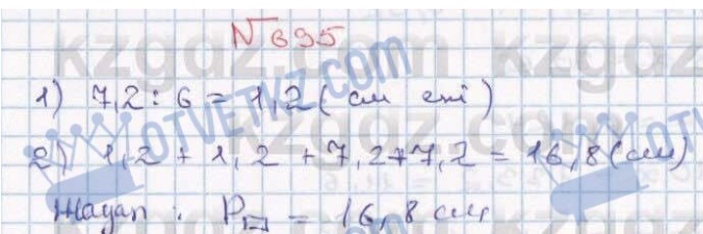 №695
1) 7,2 : 6 = 1,2 (см ені)
2) 1,2 + 1,2 + 7,2 + 7,2 = 16,8 (см)
Жауап : P▭ = 16,8 см
kzgdz.com kzgdz
OTVETKZ.COM